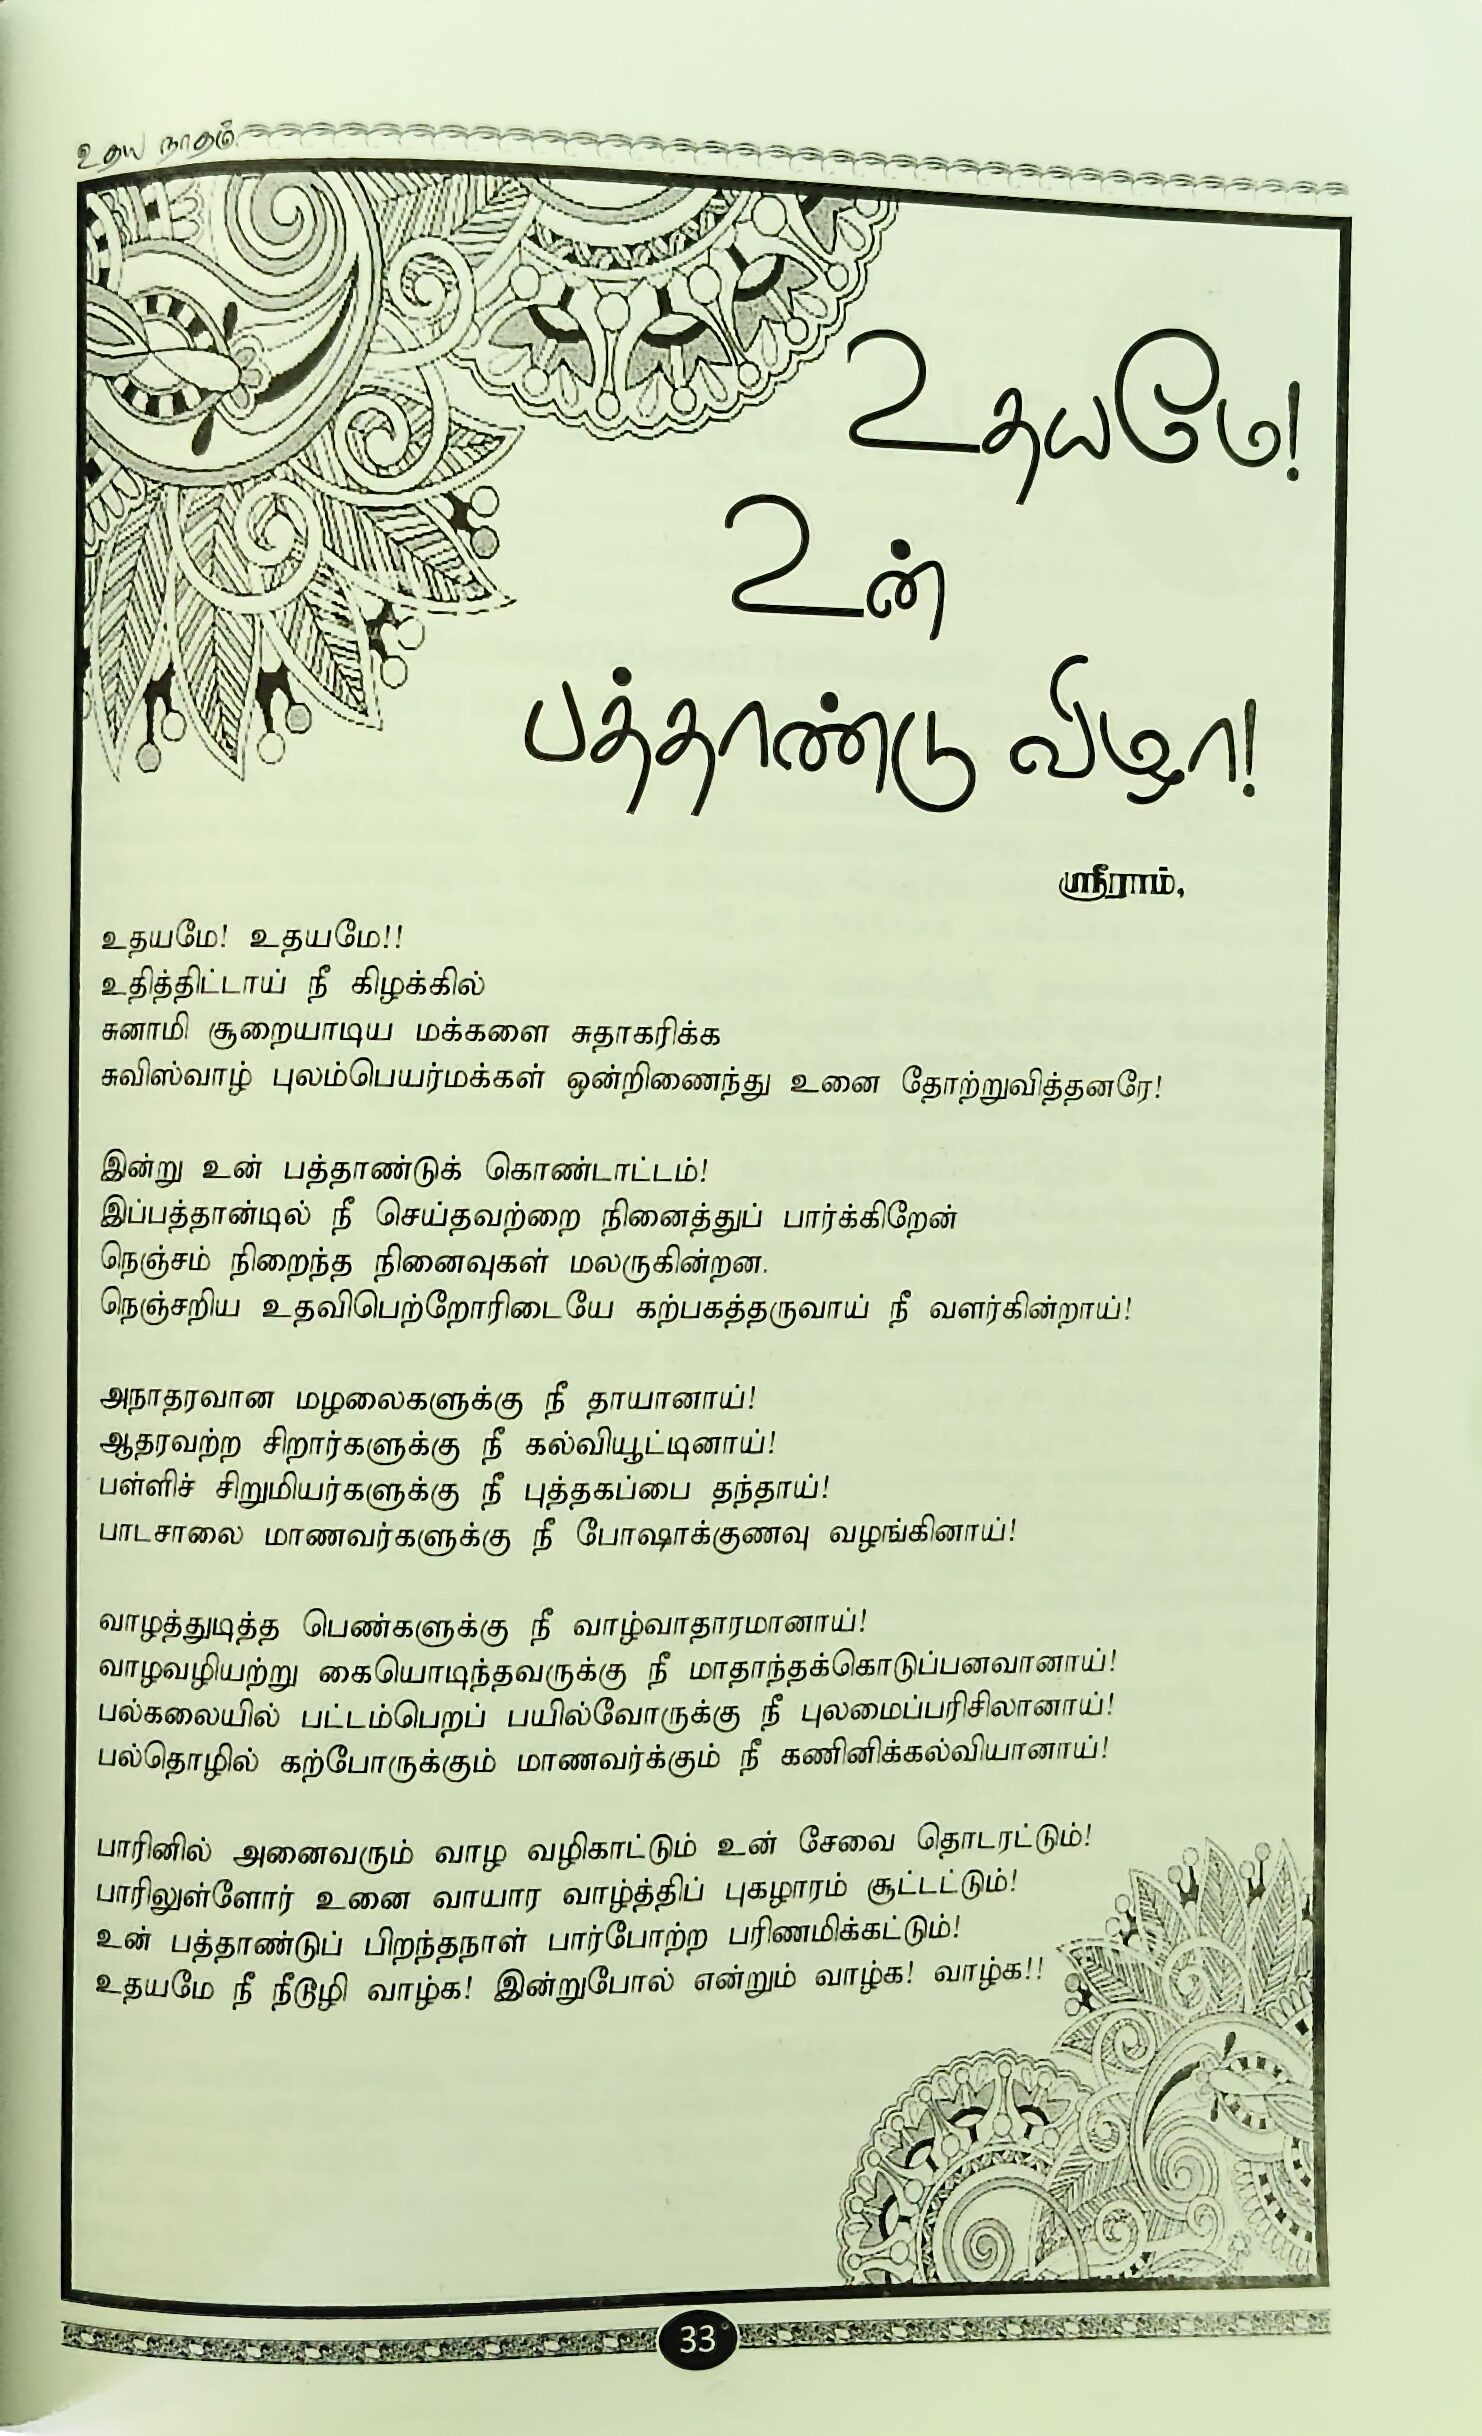 உதய நாதம்
உதயமே!
உன்
பத்தாண்டு விழா!
ஸ்ரீராம்,
உதயமே! உதயமே!!
உதித்திட்டாய் நீ கிழக்கில்
சுனாமி சூறையாடிய மக்களை சுதாகரிக்க
சுவிஸ்வாழ் புலம்பெயர்மக்கள் ஒன்றிணைந்து உனை தோற்றுவித்தனரே!
இன்று உன் பத்தாண்டுக் கொண்டாட்டம்!
இப்பத்தான்டில் நீ செய்தவற்றை நினைத்துப் பார்க்கிறேன்
நெஞ்சம் நிறைந்த நினைவுகள் மலருகின்றன.
நெஞ்சறிய உதவிபெற்றோரிடையே கற்பகத்தருவாய் நீ வளர்கின்றாய்!
அநாதரவான மழலைகளுக்கு நீ தாயானாய்!
ஆதரவற்ற சிறார்களுக்கு நீ கல்வியூட்டினாய்!
பள்ளிச் சிறுமியர்களுக்கு நீ புத்தகப்பை தந்தாய்!
பாடசாலை மாணவர்களுக்கு நீ போஷாக்குணவு வழங்கினாய்!
வாழத்துடித்த பெண்களுக்கு நீ வாழ்வாதாரமானாய்!
வாழவழியற்று கையொடிந்தவருக்கு நீ மாதாந்தக்கொடுப்பனவானாய்!
பல்கலையில் பட்டம்பெறப் பயில்வோருக்கு நீ புலமைப்பரிசிலானாய்!
பல்தொழில் கற்போருக்கும் மாணவர்க்கும் நீ கணினிக்கல்வியானாய்!
பாரினில் அனைவரும் வாழ வழிகாட்டும் உன் சேவை தொடரட்டும்!
பாரிலுள்ளோர் உனை வாயார வாழ்த்திப் புகழாரம் சூட்டட்டும்!
உன் பத்தாண்டுப் பிறந்தநாள் பார்போற்ற பரிணமிக்கட்டும்!
உதயமே நீ நீடூழி வாழ்க! இன்றுபோல் என்றும் வாழ்க! வாழ்க!!
33